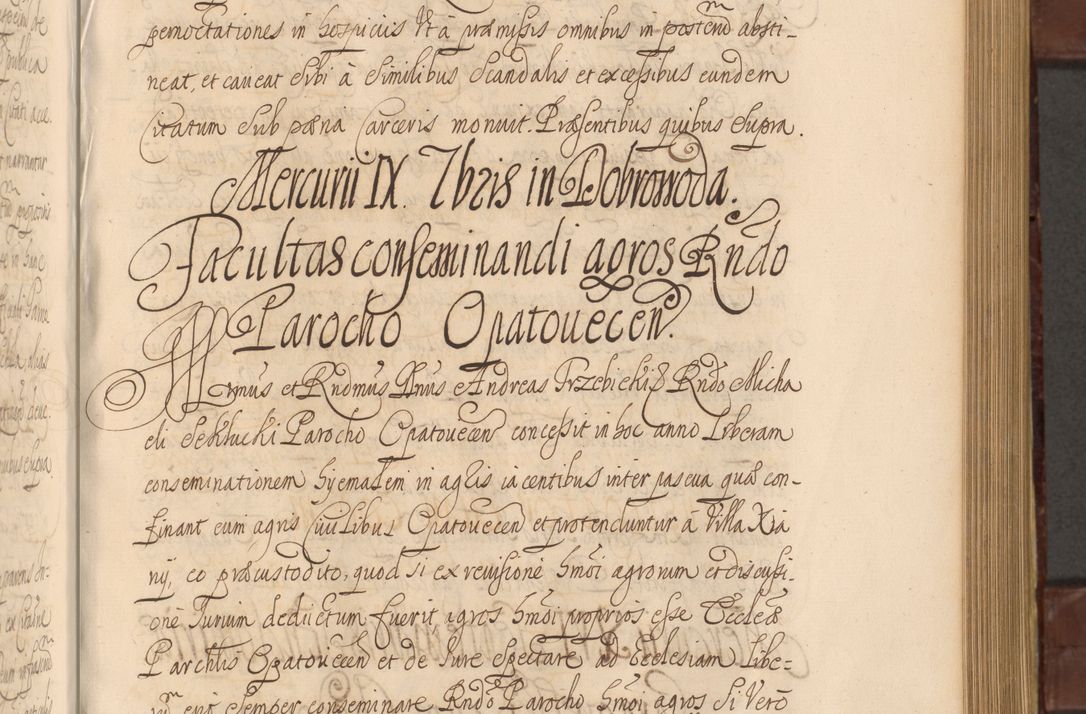 pernoctationes in hospiciis Ut â præmissis omnibus in posterũ absti-
neat, et caveat sibi â Similibus Scandalis et excessibus eundem
Citatum Sub pæna Carceris monuit. Præsentibus quibus Supra.
Mercurii IX. 7bris in Dobrowoda.
Facultas conseminandi agros Rndo
Parocho Opatovecen.
Illmus et Rndmus Dnus Andreas Trzebicki Rndo Micha
eli Sekłucki Parocho Opatovecen concessit in hoc anno Liberam
conseminationem hyemalem in agris iacentibus inter pascua quæ con-
finant cum agris Civilibus Opatovecen et protenduntur â Villa Xia
nij, eo præcustodito, quod si ex revisione hmõi agrorum et discussi-
one Iurium deductum fuerit agros hmõi proprios esse Eccleæ
Parchlis Opatovecen et de Iure Spectare ad Ecclesiam Libe-
erit Semper conseminare Rndo Parocho hmõi agros Si Verò